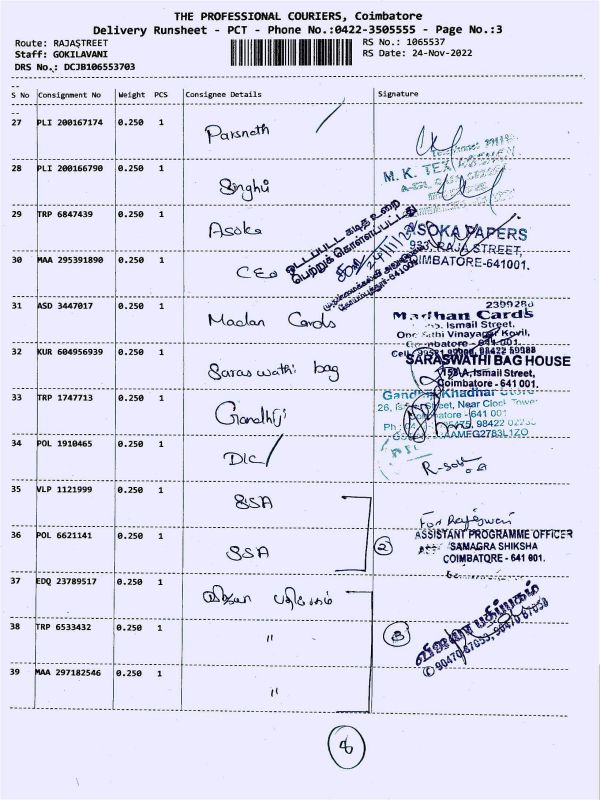 THE PROFESSIONAL COURIERS, Coimbatore
Delivery Runsheet - PCT - Phone No.:0422-3505555 - Page No.:3
Route: RAJASTREET
RS No.: 1065537
Staff: GOKILAVANI
RS Date: 24-Nov-2022
DRS No.: DCJB106553703
S No Consignment No Weight PCS Consignee Details Signature
27 PLI 200167174 0.250 1 Parsnath
28 PLI 200166790 0.250 1 Singhvi
M. K. TEX AGENCY
29 TRP 6847439 0.250 1 Asoka
ASOKA PAPERS
RAJA STREET,
COIMBATORE-641001.
30 MAA 295391890 0.250 1 CEO
பெற்றுக் கொள்ளப்பட்டது
24/11/22
31 ASD 3447017 0.250 1 Madan Cards
2399280
Madhan Cards
Ismail Street,
Vinayagar Kovil,
Coimbatore - 641 001.
32 KUR 604956939 0.250 1 Saraswathi bag
SARASWATHI BAG HOUSE
Ismail Street,
Coimbatore - 641 001.
33 TRP 1747713 0.250 1 Gandhiji
Gandhiji Khadhar Store
Street, Near Clock Tower
Coimbatore - 641 001
34 POL 1910465 0.250 1 DIC
35 VLP 1121999 0.250 1 SSA
For Rajeswari
36 POL 6621141 0.250 1 SSA
2
ASSISTANT PROGRAMME OFFICER
SAMAGRA SHIKSHA
COIMBATORE - 641 001.
37 EDQ 23789517 0.250 1 விஜயா பதிப்பகம்
38 TRP 6533432 0.250 1 "
3
விஜயா பதிப்பகம்
39 MAA 297182546 0.250 1 "
8